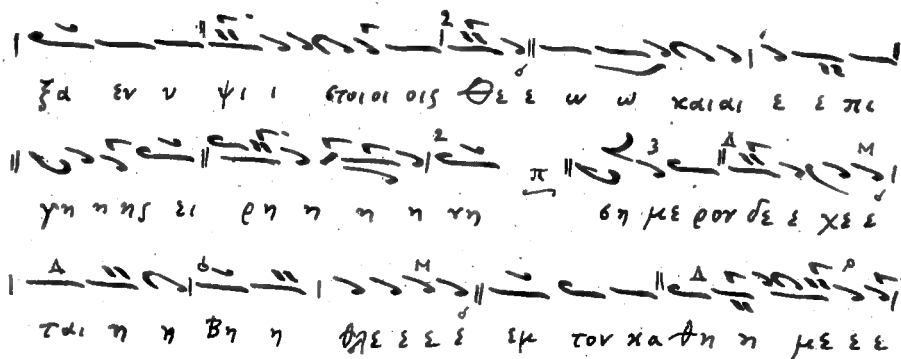 ξα εν υ ψι ι στοιοι οις Θε ε ω ω καιαι ε ε πι
γη η ης ει ρη η η η νη π ση με ρον δε ε χε ε
ται η η Βη η θλε ε ε ε εμ τον κα θη η με ε ε